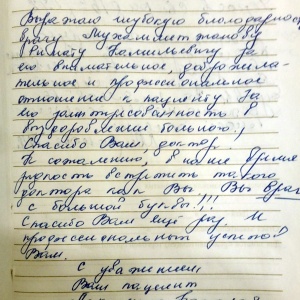 Выражаю глубокую благодарность
врачу Мухаметжанову
Ринату Камильевичу за
его внимательное, доброжела-
тельное и профессиональное
отношение к пациенту. За
его заинтресованность в
выздоровлении больного!
Спасибо Вам, доктор.
К сожалению, в наше время
редкость встретить такого
доктора как Вы. Вы врач
с большой буквы!!!
Спасибо Вам ещё раз. И
профессиональных успехов
Вам.
С уважением,
Ваш пациент